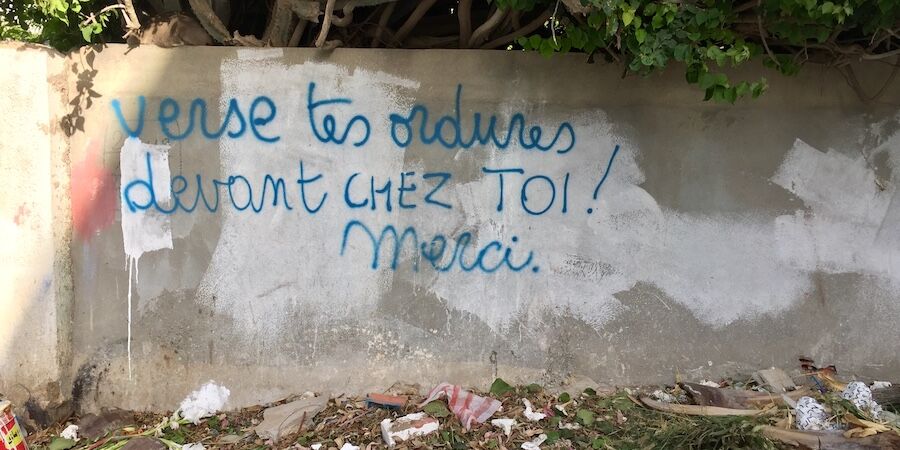 verse tes ordures
devant CHEZ TOI !
Merci.